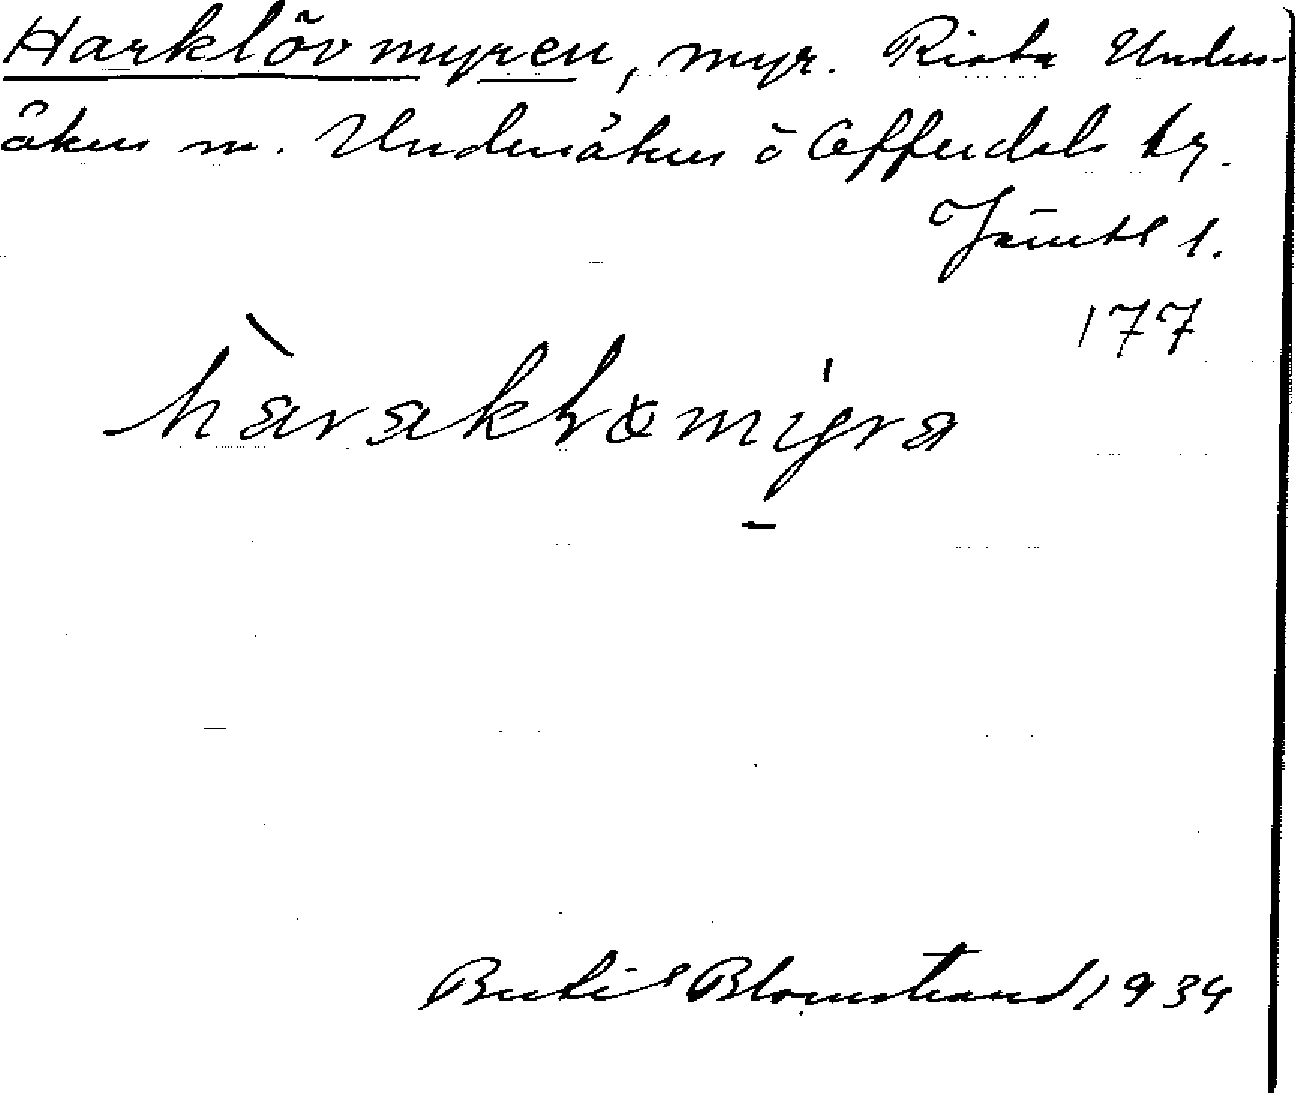 Harklövmyren, myr. Rista Unders-
åkers sn. Undersåkers o Offerdals tg.
Jämtl l.
177
hàraklømýra
Bertil Blomstrand 1934